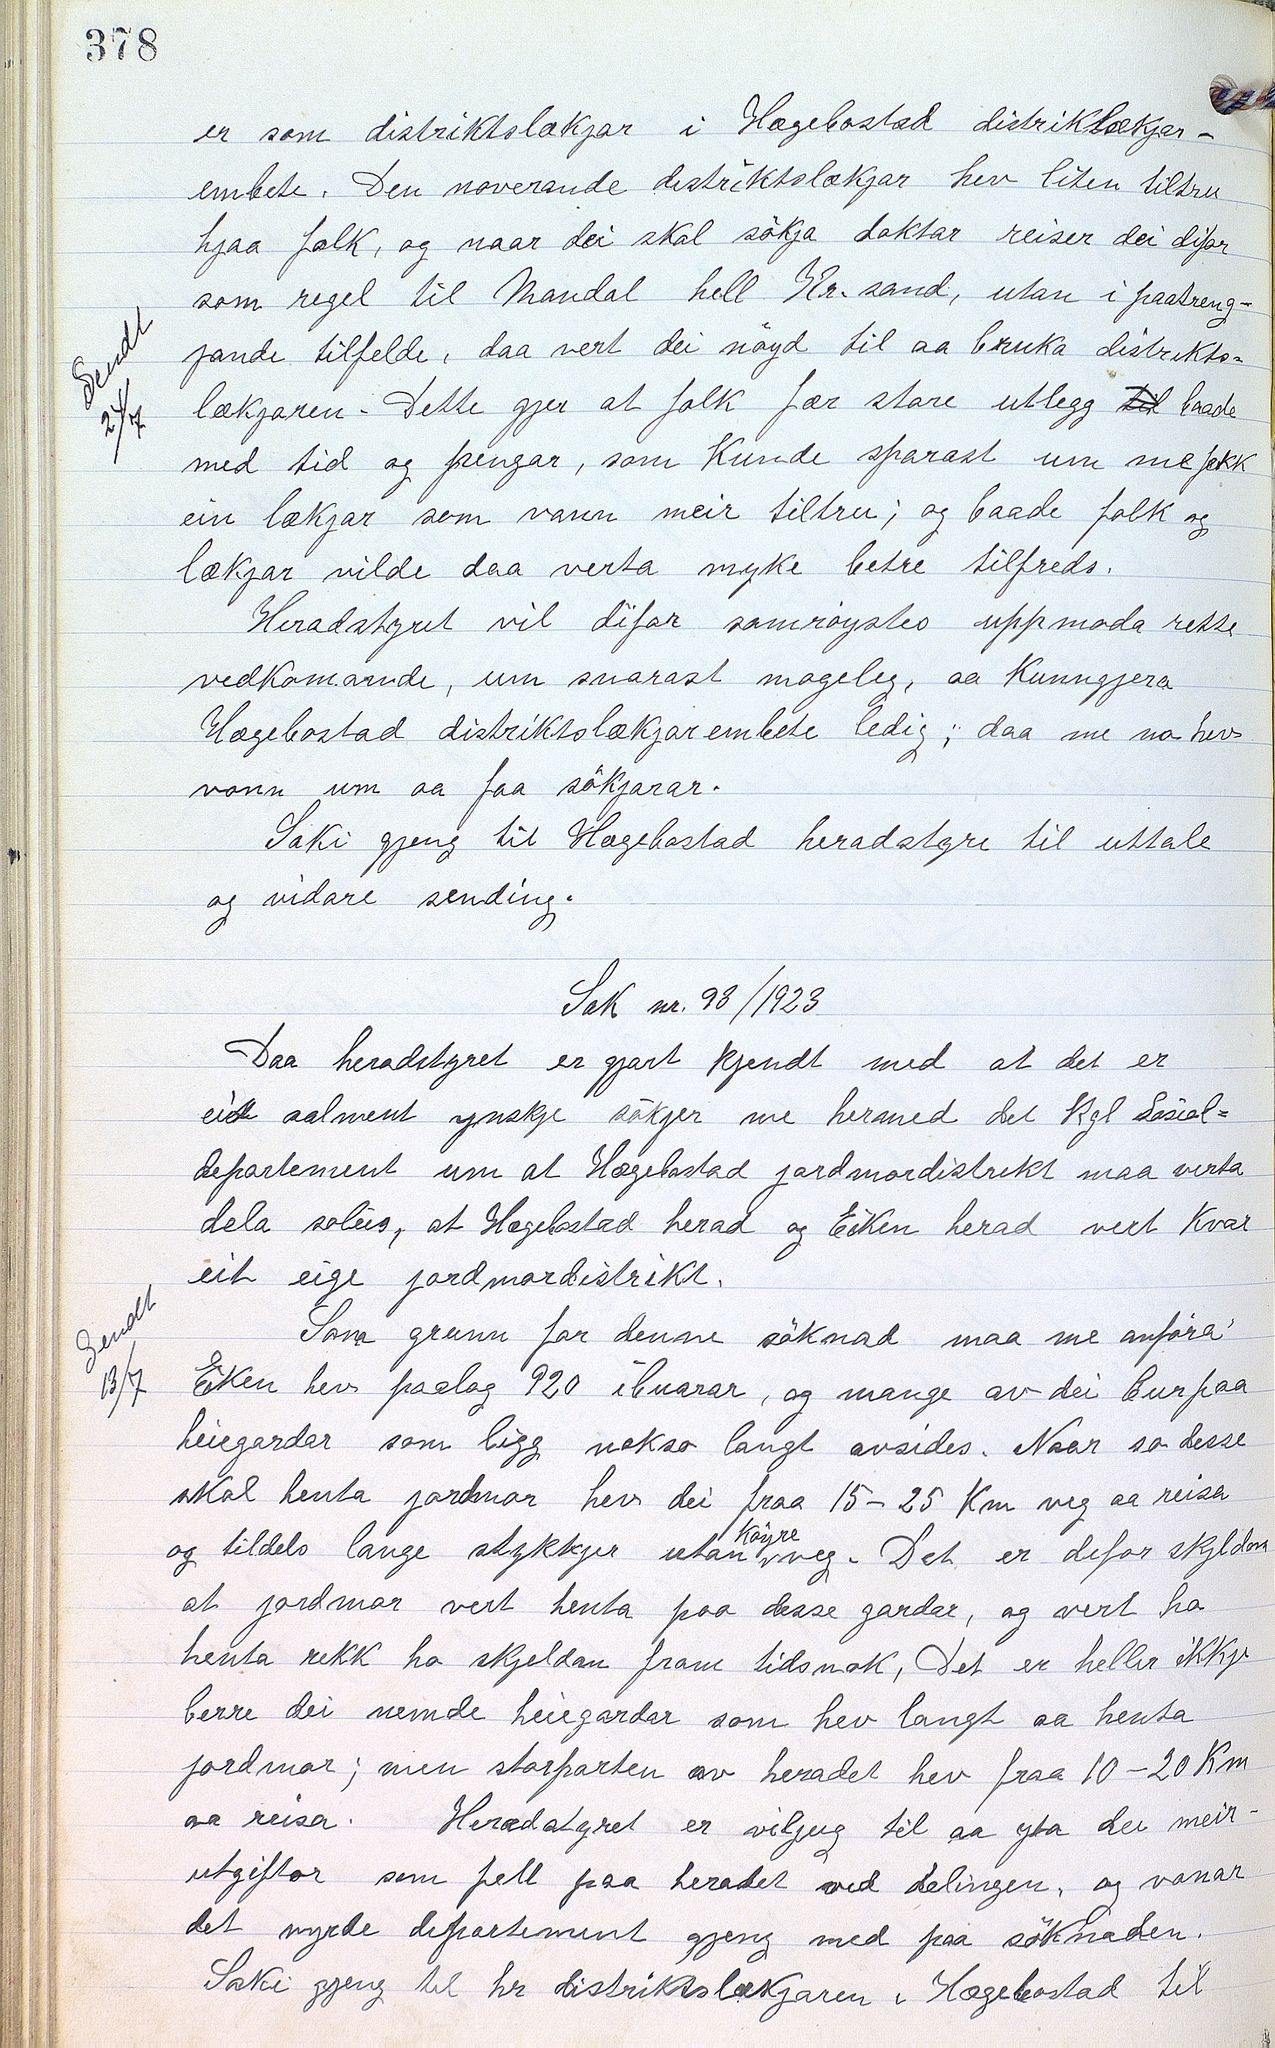 378
er som distriktslækjar i Hægebostad distriktlækjar-
embete. Den noverande distriktslækjar hev liten tiltru
hjaa folk, og naar dei skal sökja doktar reiser dei difor
som regel til Mandal hell Kr. sand, utan i paatreng-
jande tilfelde, daa vert dei nöyd til aa bruka distrikts-
Sendt
24/7
lækjaren. Dette gjer at folk fær store utlegg til baade
med tid og pengar, som kunde sparast um me fekk
ein lækjar som vann meir tiltru; og baade folk og
lækjar vilde daa verta myke betre tilfreds.
Heradstyret vil difor samröystes uppmoda rette
vedkomande, um snarast mogeleg, aa kunngjera
Hægebostad distriktslækjarembete ledig; daa me no hev
vonn um aa faa sökjarar.
Saki gjeng til Hægebostad heradstyre til uttale
og vidare sending.
Sak nr. 93/1923
Daa heradstyret er gjort kjendt med at det er
eit aalment ynskje sökjer me hermed det Kgl Sosial=
departement um at Hægebostad jordmordistrikt maa verta
dela soleis, at Hægebostad herad og Eiken herad vert kvar
eit eige jordmordistrikt.
Sendt
13/7
Som grunn for denne söknad maa me anföra:
Eiken hev paalag 920 ibuarar, og mange av dei bur paa
heiegardar som ligg nokso langt avsides. Naar so desse
skal henta jordmor hev dei fraa 15-25 Km veg aa reisa
og tildels lange stykkjer utan köyre veg. Det er difor skjeldom
at jordmor vert henta paa desse gardar, og vert ho
henta rekk ho skjeldan fram tidsnok, Det er heller ikkje
berre dei nemde heiegardar som hev langt aa henta
jordmor; men storparten av heradet hev fraa 10-20 Km
aa reisa. Heradstyret er viljug til aa yta dei meir-
utgiftor som fell paa heradet ved delingen, og vonar
det vyrde departement gjeng med paa söknaden.
Saki gjeng til hr distriktslækjaren i Hægebostad til